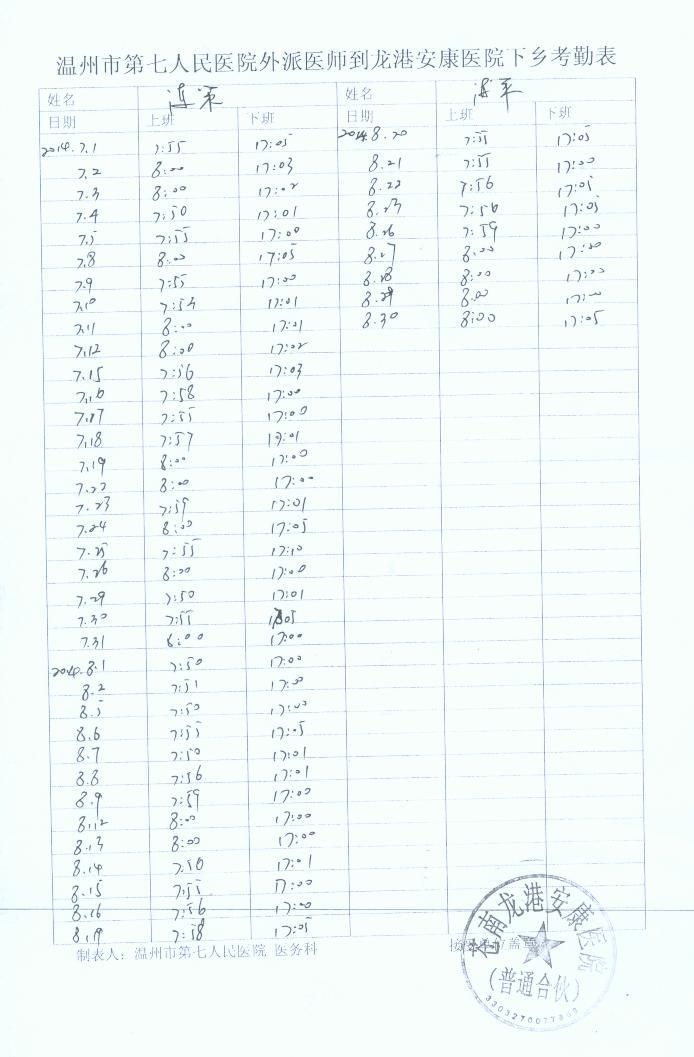 温州市第七人民医院外派医师到龙港安康医院下乡考勤表
姓名 姓名
日期 上班 下班 日期 上班 下班
2014.7.1 7:55 17:05 2014.8.20 7:55 17:05
7.2 8:00 17:03 8.21 7:55 17:00
7.3 8:00 17:02 8.22 7:56 17:05
7.4 7:50 17:01 8.23 7:56 17:05
7.5 7:55 17:00 8.26 7:59 17:00
7.8 8:00 17:05 8.27 8:00 17:00
7.9 7:55 17:00 8.28 8:00 17:00
7.10 7:54 17:01 8.29 8:00 17:00
7.11 8:00 17:01 8.30 8:00 17:05
7.12 8:00 17:02
7.15 7:56 17:03
7.16 7:58 17:00
7.17 7:55 17:00
7.18 7:57 17:01
7.19 8:00 17:00
7.22 8:00 17:00
7.23 7:59 17:01
7.24 8:00 17:05
7.25 7:55 17:10
7.26 8:00 17:00
7.29 7:50 17:01
7.30 7:55 17:05
7.31 8:00 17:00
2014.8.1 7:50 17:00
8.2 7:51 17:00
8.5 7:50 17:00
8.6 7:55 17:05
8.7 7:50 17:01
8.8 7:56 17:01
8.9 7:59 17:00
8.12 8:00 17:00
8.13 8:00 17:00
8.14 7:50 17:01
8.15 7:55 17:00
8.16 7:56 17:00
8.19 7:58 17:05
制表人：温州市第七人民医院 医务科
盖章
苍南龙港安康医院
（普通合伙）